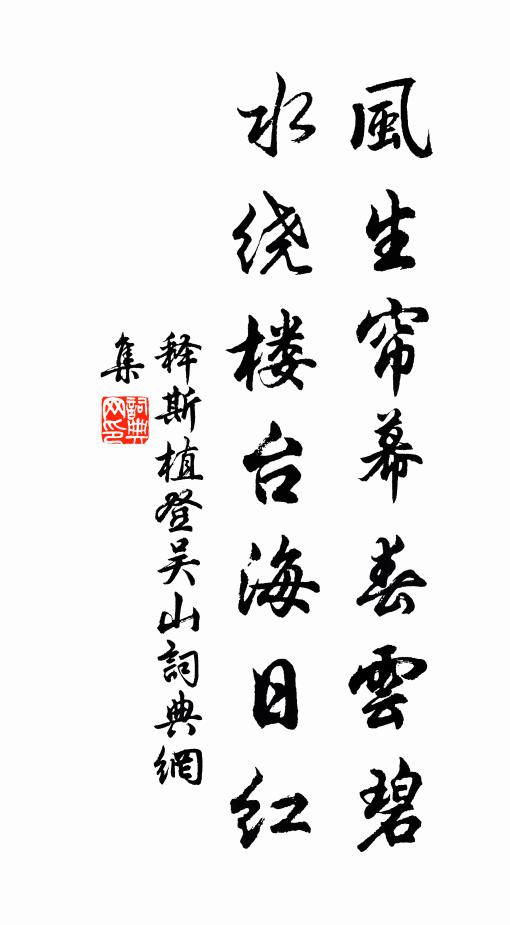 風生帘幕春雲碧
水绕楼台海日红
释斯植登吴山詞典網
集
詞典网印